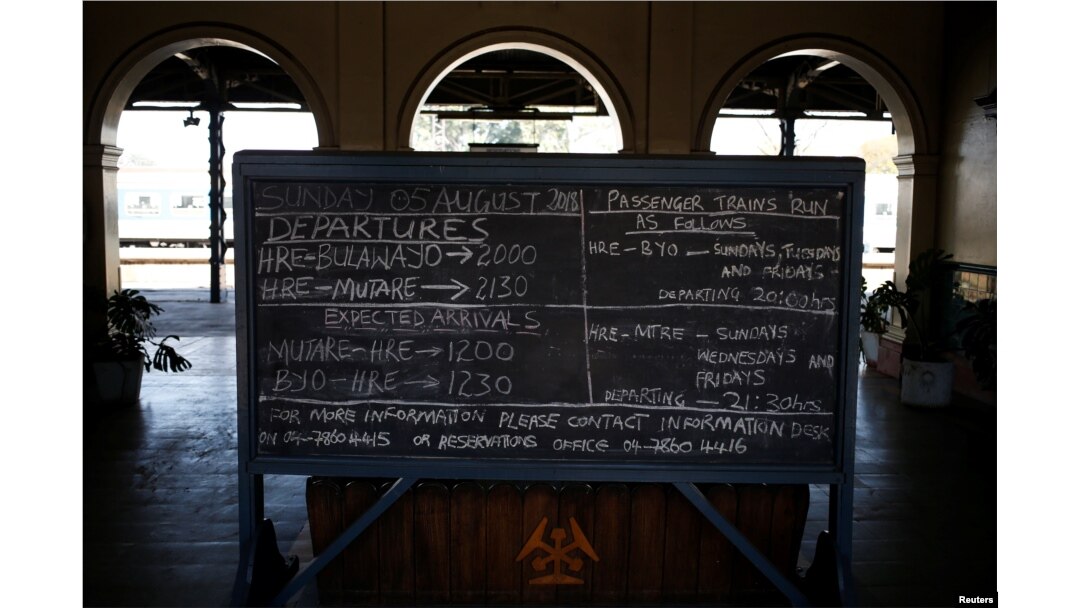 SUNDAY 05 AUGUST 2018
DEPARTURES
HRE-BULAWAYO → 2000
HRE-MUTARE → 2130
EXPECTED ARRIVALS
MUTARE-HRE → 1200
BYO-HRE → 1230
PASSENGER TRAINS RUN
AS FOLLOWS
HRE-BYO - SUNDAYS, TUESDAYS
AND FRIDAYS
DEPARTING 20:00hrs
HRE-MTRE - SUNDAYS
WEDNESDAYS AND
FRIDAYS
DEPARTING - 21:30hrs
FOR MORE INFORMATION PLEASE CONTACT INFORMATION DESK
ON 04-78604415 OR RESERVATIONS OFFICE 04-78604416
Reuters